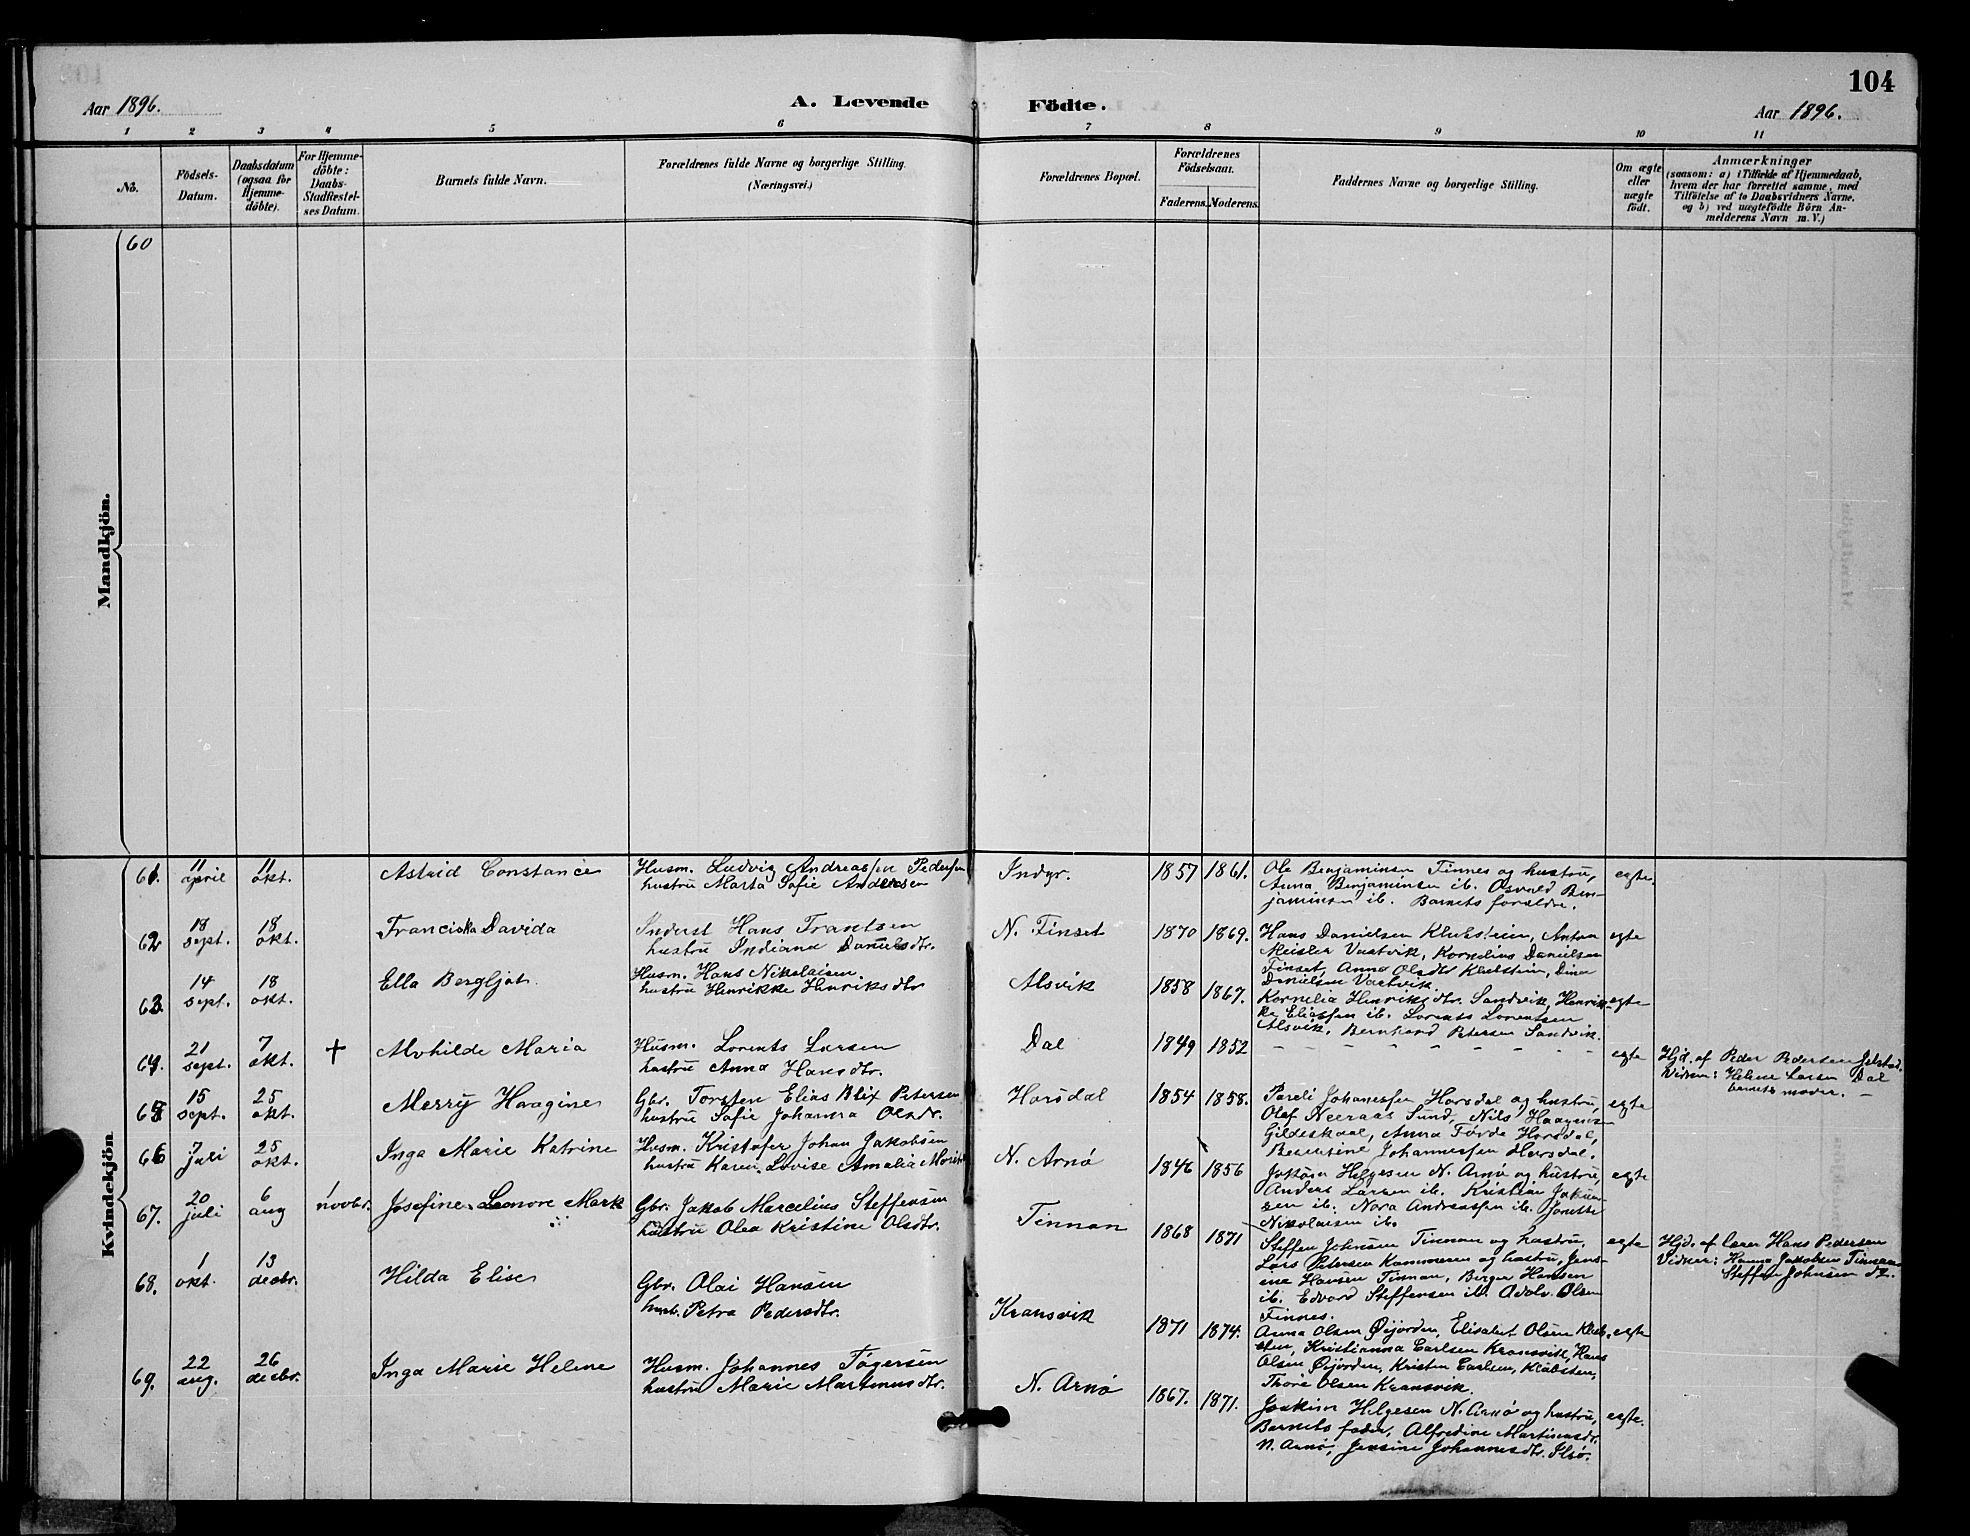 104
Aar 1896.
A. Levende Födte.
Aar 1896.
1 2 3 4 5 6 7 8 9 10 11
No.
Födsels-
Datum.
Daabsdatum
(ogsaa for
Hjemme-
döbte).
For Hjemme-
döbte:
Daabs-
Stadfæstel-
ses Datum.
Barnets fulde Navn.
Forældrenes fulde Navne og borgerlige Stilling.
(Næringsvei.)
Forældrenes Bopæl.
Forældrenes
Födselsaar.
Faderens. Moderens.
Faddernes Navne og borgerlige Stilling.
Om ægte
eller
uægte
födt.
Anmærkninger
(saasom: a) i Tilfælde af Hjemmedaab,
hvem der har forrettet samme, med
Tilföielse af to Daabsvidners Navne.
og b) ved uægtefödte Börn An-
melderens Navn m. V.)
Mandkjön.
60
Kvindekjön.
61. 11 april 11 okt. Astrid Constance
Husm. Ludvig Andreassen Pedersen
hustru Marta Sofie Andersen
Indyr. 1857 1861.
Ole Benjaminsen Finnes og hustru,
Anna Benjaminsen ib. Osvald Ben-
jaminsen ib. Barnets forældre.
egte.
62 18 sept. 18 okt. Franciska Davida
Inderst Hans Frantsen
hustru Indiana Danielsdtr.
N. Finset 1870 1869.
Hans Danielsen Anton
Meisler Vastvik, Kornelius Danielsen
Finset, Anna Olsdtr Dina
Danielsen Vastvik.
egte
63. 14 sept. 18 okt. Ella Bergljot.
Husm. Hans Nikolaisen.
hustru Henrikke Henriksdtr
Alsvik 1858 1867.
Kornelia Henriksdtr. Sandvik, Henrik-
ke Eliassen ib. Lorents Lorentsen
Alsvik, Bernhard Petersen Sandvik.
egte
64. 21 sept. 7 okt. † Alvhilde Maria
Husm. Lorents Larsen
hustru Anna Hansdtr.
Dal 1849 1852
egte
Hjd. af Peder Pedersen
Vidner: Helene Larsen Dal
barnets moder. —
65 15 sept. 25 okt. Merry Haagine
Gbr. Torsten Elias Blix Petersen
hustru Sofie Johanna Olsdtr.
Horsdal 1854 1858.
Pareli Johannessen Horsdal og hustru,
Olaf Neeraas Sund, Nils Haagensen
Gildeskaal, Anna Førde Horsdal,
Berentine Johannessen Horsdal.
egte
66 7 juli 25 okt. Inga Marie Katrine
Husm. Kristofer Johan Jakobsen
hustru Karen Lovise Amalia
N. Arnø 1846 1856
Joakim Helgesen N. Arnø og hustru,
Anders Larsen ib. Kristine
sen ib. Nora Andreassen ib. Jonette
Nikolaisen ib.
egte
67. 20 juli 6 aug 1 novbr. Josefine Leonore Mark
Gbr. Jakob Marcelius Steffensen
hustru Olea Kristine Olsdtr.
Tinnan 1868 1871
Steffen Johnsen Tinnan og hustru,
Lars Petersen Kammeren og hustru, Jens-
ine Hansen Tinnan, Birger Hansen
ib. Edvard Steffensen ib. Adolv Olsen
Finnes.
egte
Hjd. af lærer Hans Pedersen
Vidner: Hanna Jakobsen Tinnan
Steffen Johnsen do.
68. 1 okt. 13 decbr. Hilda Elise
Gbr. Olai Hansen
hust. Petra Pedersdtr.
Kransvik 1871 1874.
Anna Olsen Øijorden, Elisabet Olsen Klæb-
sten, Kristianna Carlsen Kransvik, Hans
Olsen Øijorden, Kristen Carlsen, Klæbsten,
Thore Olsen Kransvik.
egte
69. 22 aug. 26 decbr. Inga Marie Helene
Husm. Johannes Tøgersen
hustru Marie Martinusdtr.
N. Arnø 1867. 1871.
Joakim Helgesen N. Arnø og hustru,
Barnets fader, Alfredine Martinusdtr.
N. Arnø, Jensine Johannesdtr.
egte.